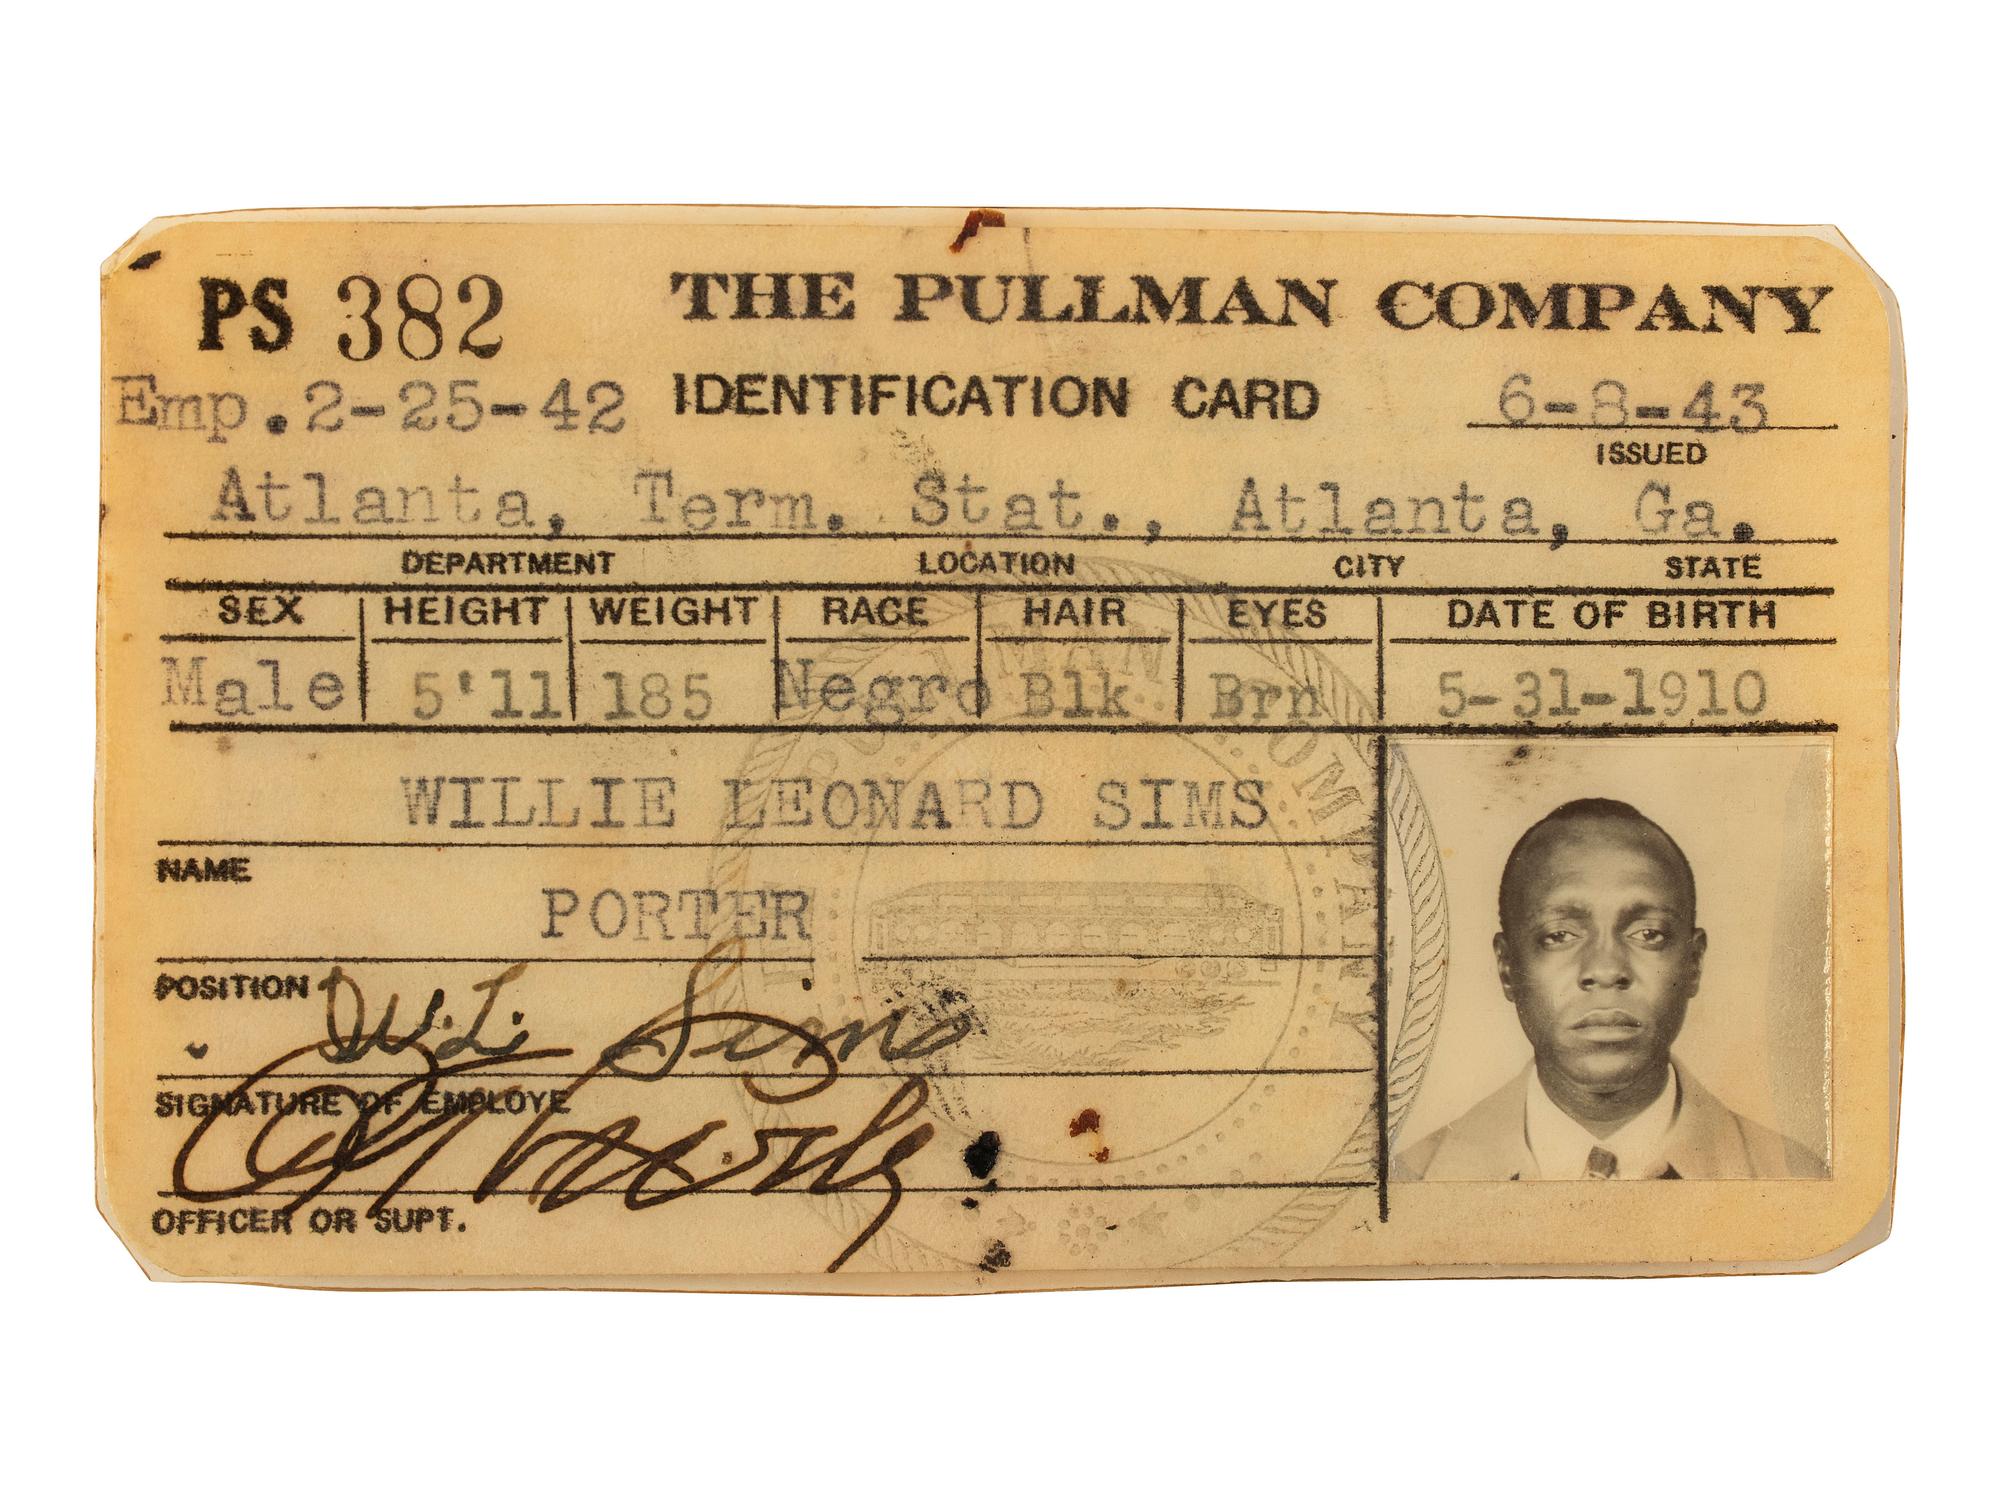 PS 382 THE PULLMAN COMPANY
Emp. 2-25-42 IDENTIFICATION CARD 6-8-43
ISSUED
Atlanta, Term. Stat., Atlanta, Ga.
DEPARTMENT LOCATION CITY STATE
SEX HEIGHT WEIGHT RACE HAIR EYES DATE OF BIRTH
Male 5'11 185 Negro Blk Brn 5-31-1910
WILLIE LEONARD SIMS
NAME
PORTER
POSITION
W. L. Sims
SIGNATURE OF EMPLOYE
OFFICER OR SUPT.
PULLMAN COMPANY